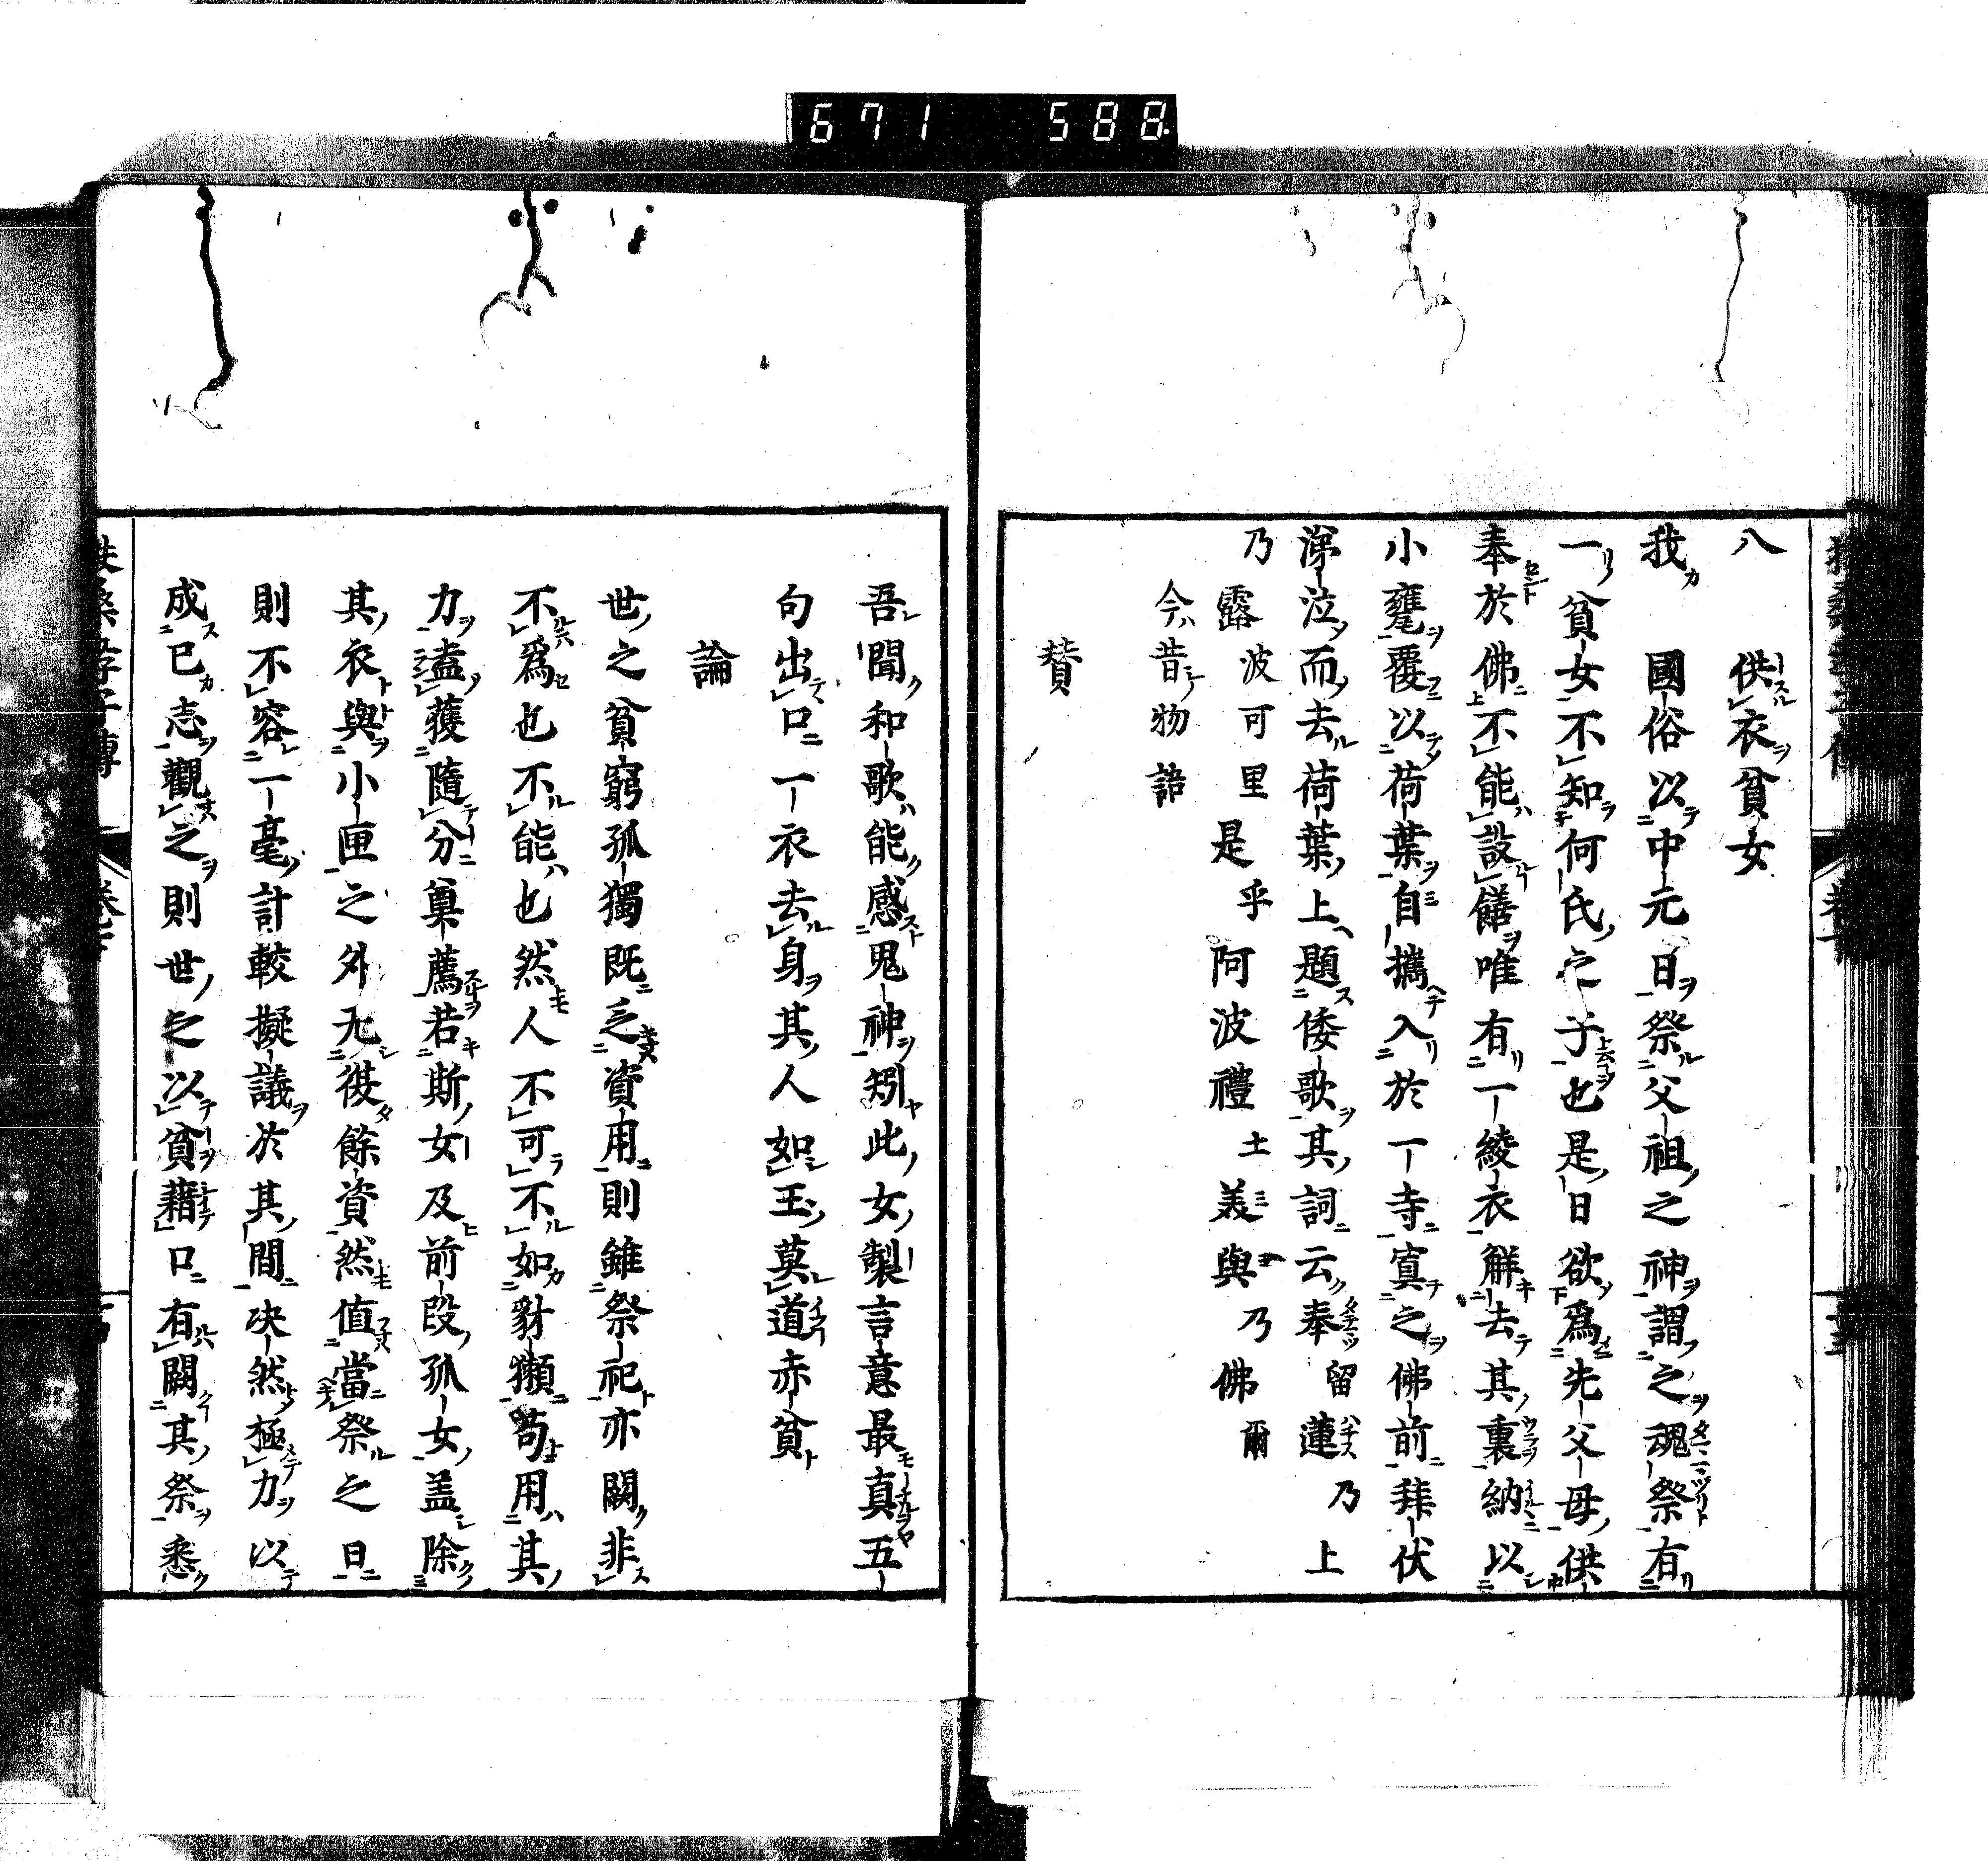 671 588
八 供衣貧女
我 國俗以中元日祭父祖之神謂之魂祭有
一貧女不知何氏之子也是日欲爲先父母供
奉於佛不能設饍唯有一綾衣解去其裏納以
小甕覆以荷葉自攜入於一寺寘之佛前拜伏
涕泣而去荷葉上題倭歌其詞云奉留蓮乃上
乃露波可里是乎阿波禮土美與乃佛爾
今昔物語
賛
吾聞和歌能感鬼神矧此女製言意最真五
句出口一衣去身其人如玉莫道赤貧
論
世之貧窮孤獨既乏資用則雖祭祀亦闕非
不爲也不能也然人不可不如豺獺苟用其
力盍獲隨分菓薦若斯女及前段孤女盖除
其衣與小匣之外无從餘資然值當祭之日
則不容一毫計較擬議於其間决然極力以
成已志觀之則世之以貧藉口有闕其祭悉